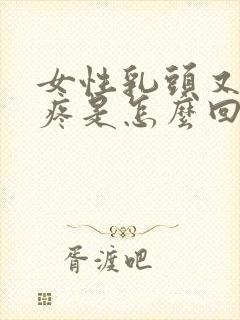 女性乳頭又
疼是怎麼回
胥渡吧